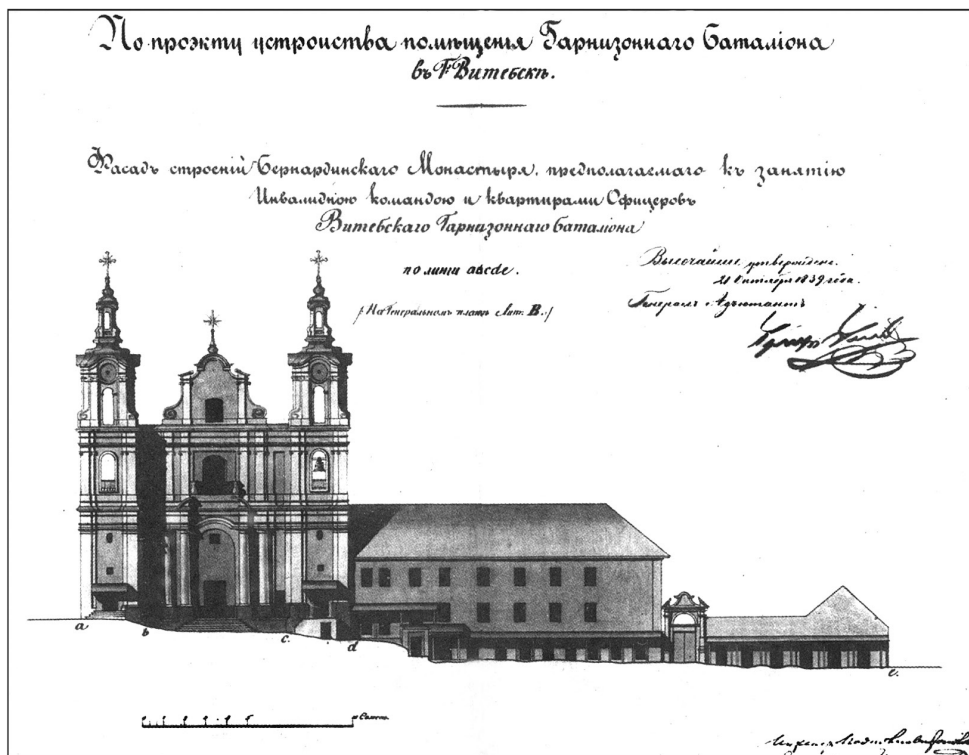 По проэкту устроиства помѣщенья Гарнизоннаго баталіона
въ Г. Витебскѣ.
Фасадъ строеній Бернардинскаго Монастыря, предполагаемаго къ занятію
Инвалидною командою и квартирами Офицеровъ
Витебскаго Гарнизоннаго баталіона
по линіи abcde.
/ На Генеральномъ планѣ Лит. B. /
Высочайше утверждено.
21 Октября 1839 года.
Генералъ-Адъютантъ
a b c. d e.